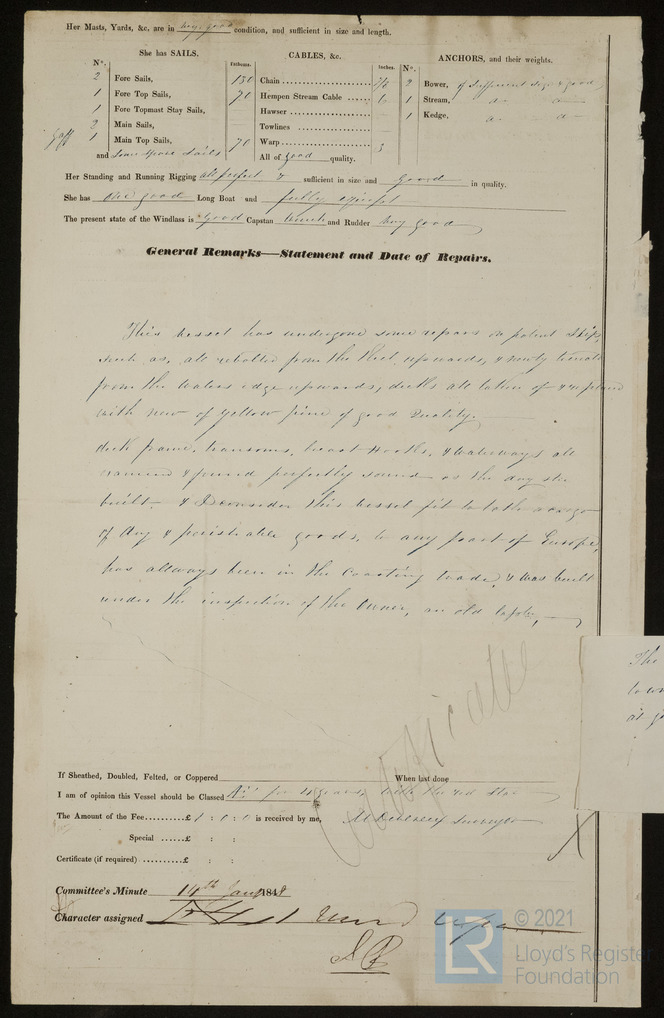 Her Masts, Yards, &c. are in very good condition, and sufficient in size and length.
She has SAILS.
CABLES, &c.
ANCHORS, and their weights.
N°.
Fathoms.
Inches.
N°.
2 Fore Sails,
1 Fore Top Sails,
1 Fore Topmast Stay Sails,
2 Main Sails,
Gaff 1 Main Top Sails,
and some spare sails
130 Chain 7/8
70 Hempen Stream Cable 6
Hawser
Towlines
70 Warp 3
All of good quality.
2 Bower, of sufficient size & good
1 Stream, do do
1 Kedge, do do
Her Standing and Running Rigging all perfect & sufficient in size and Good in quality.
She has one good Long Boat and
The present state of the Windlass is Good Capstan Winch and Rudder Very good
General Remarks—Statement and Date of Repairs.
This vessel has undergone some repairs on patent Slip,
such as, all rebolted from the upwards, & newly
from the waters edge upwards, decks all taken of &
with new of yellow pine of good Quality.
deck frame, transoms, breast Hooks, & waterways all
& found perfectly sound as the day she
built. & I consider this vessel fit to take a cargo
of dry & perishable goods, to any part of Europe,
has allways been in the Coasting trade, & was built
under the inspection of the Owner, an old
The
If Sheathed, Doubled, Felted, or Coppered When last done
I am of opinion this Vessel should be Classed for 4 years, with the red Star
The Amount of the Fee £ 1 : 0 : 0 is received by me, Surveyor
Special £ : :
Certificate (if required) £ : :
Certificate
Committee's Minute 14th Jany 184
Character assigned
© 2021
LR
Lloyd's Register
Foundation